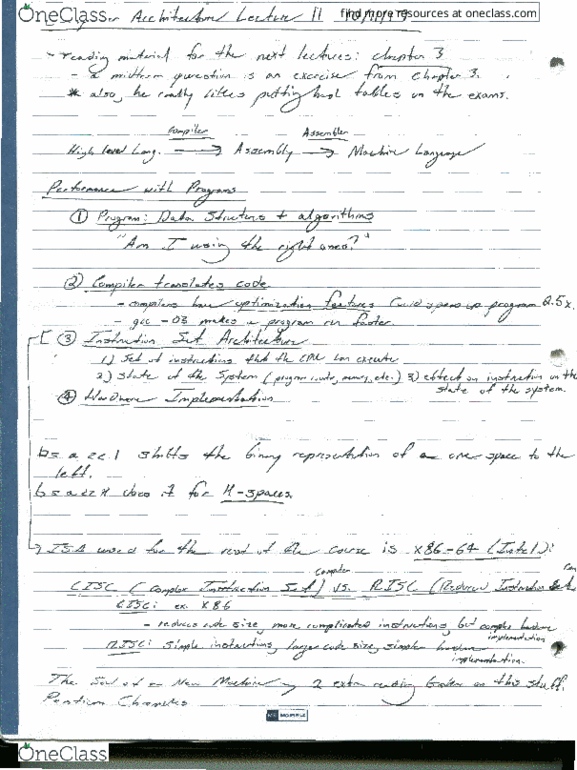 OneClass
find more resources at oneclass.com
Architecture Lecture 11
- reading material for the next lectures: chapter 3
- a midterm question is an exercise from chapter 3.
* also, he really likes putting hash tables on the exams.
Compiler Assembler
High level Lang. → Assembly → Machine Language
Performance with Programs
① Program: Data Structures + algorithms
"Am I using the right ones?"
② Compiler translates code
- compilers have optimization features could speed up program 2.5x.
- gcc -O3 makes a program run faster.
[ ③ Instruction Set Architecture
1) Set of instructions that the CPU can execute
2) State of the System (program counter, memory, etc.) 3) effect an instruction on the
state of the system.
④ Hardware Implementation
a << 1 shifts the binary representation of a one space to the
left.
does it for M-spaces.
→ ISA used for the rest of the course is x86-64 (Intel):
Computer
CISC (Complex Instruction Set) vs. RISC (Reduced Instruction Set
CISC: ex. X86
- reduces code size, more complicated instructions, but complex hardware
implementation
RISC: Simple instructions, larger code size, simpler hardware
implementation.
The Soul of a New Machine 2 extra reading books on this stuff.
Pentium Chronicles
OneClass